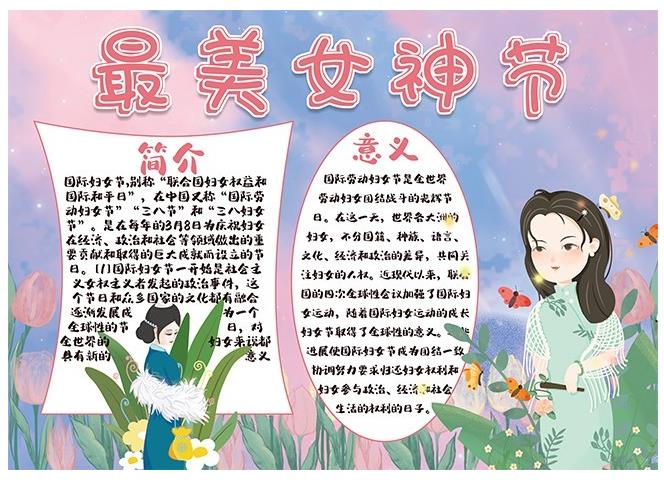 最美女神节
简介
国际妇女节,别称“联合国妇女权益和
国际和平日”,在中国又称“国际劳
动妇女节”“三八节”和“三八妇女
节”。是在每年的3月8日为庆祝妇女
在经济、政治和社会等领域做出的重
要贡献和取得的巨大成就而设立的节
日。(1)国际妇女节一开始是社会主
义女权主义者发起的政治事件,这
个节日和众多国家的文化都有融合
逐渐发展成 为一个
全球性的节 日,对
全世界的 妇女来说都
具有新的 意义
意义
国际劳动妇女节是全世界
劳动妇女团结战斗的光辉节
日。在这一天,世界各大洲的
妇女,不分国籍、种族、语言、
文化、经济和政治的差异,共同关
注妇女的人权。近现代以来,联合
国的四次全球性会议加强了国际妇
女运动,随着国际妇女运动的成长
妇女节取得了全球性的意义。
进展使国际妇女节成为团结一致
协调努力要求归还妇女权利和
妇女参与政治、经济和社会
生活的权利的日子。